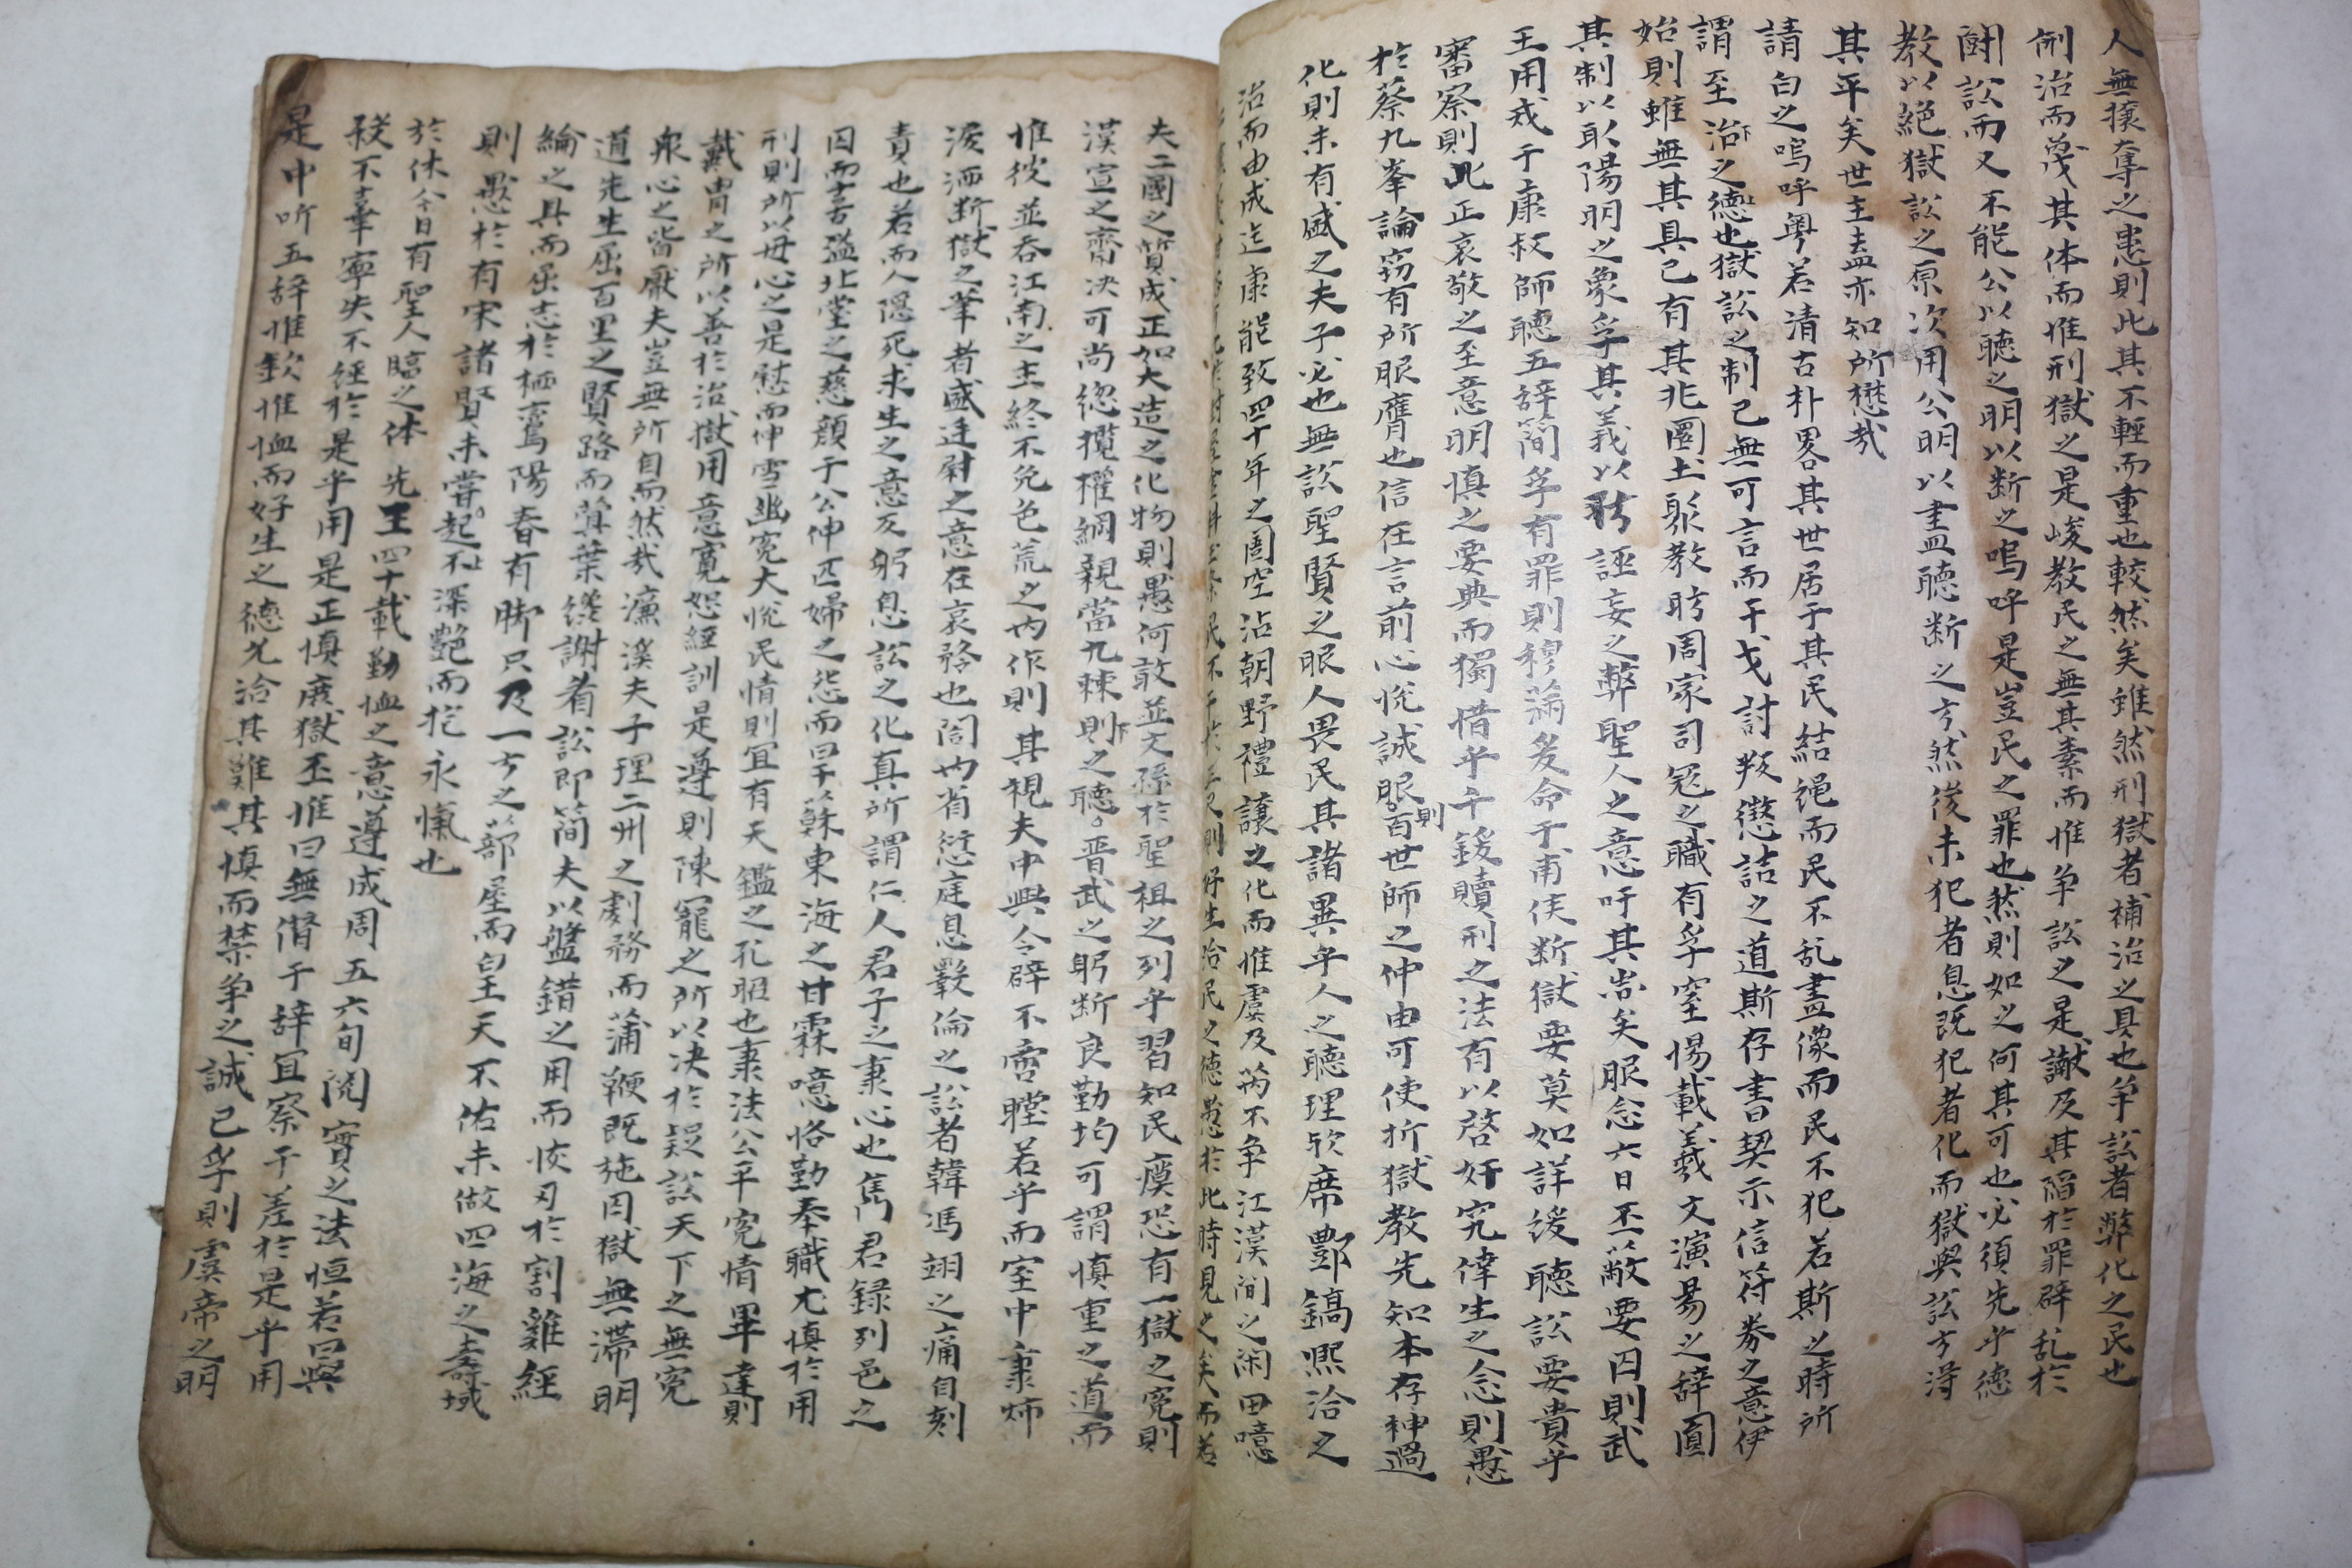 人無攘奪之患則此其不輕而重也較然矣雖然刑獄者補治之具也爭訟者弊化之民也
刑治而蔑其体而惟刑獄之是峻教民之無其素而惟争訟之是讞及其陷於罪辟乱於
闘訟而又不能公以聽之明以断之嗚呼是豈民之罪也然則如之何其可也必須先乎德
教以絕獄訟之原次用公明以盡聽断之方然後未犯者息既犯者化而獄與訟方淂
其平矣世主盍亦知所懋哉
請白之嗚呼粤若清古朴畧其世居于其民結绳而民不乱畫像而民不犯若斯之時所
謂至治之德也獄訟之制已無可言而干戈討叛懲詰之道斯存書契示信符券之意伊
始則雖無其具已有其兆圜圡聚教昉周家司冦之職有孚窒惕載羲文演易之辞圓
其制以取陽明之象孚其義以 誣妄之弊聖人之意吁其尚矣服念六日丕蔽要囚則武
王用戒于康叔師聽五辞簡孚有罪則穆滿爰命于甫侯断獄要莫如詳緩聽訟要貴乎
審察則此正哀敬之至意明慎之要典而獨惜乎千鍰贖刑之法有以啓奸宄倖生之念則愚
於蔡九峯論窃有所服膺也信在言前心悅誠服則百世師之仲由可使折獄教先知本存神過
化則未有盛之夫子必也無訟聖賢之服人畏民其諸異乎人之聽理欤席酆鎬熙洽之
治而由成迄康能致四十年之圄空沾朝野禮讓之化而惟虞及芮不爭江漢间之闲田噫
民不 於三尺則好生洽民之德愚於此時見之矣而若
夫二國之質成正如大造之化物則愚何敢並文孫於聖祖之列乎習知民瘼恐有一獄之寃則
漢宣之齋决可尚總攬權綱親當九棘則之聽晋武之躬断良勤均可謂慎重之道而
惟彼並吞江南之主終不免色荒之内作則其視夫中興令辟不啻瞠若乎而室中 炳
泼洒断獄之筆者盛廷尉之意在哀矜也閤内省愆庭息毅倫之訟者韓馮翊之痛自刻
責也若而人隐死求生之意反躬息訟之化真所謂仁人君子之秉心也雋君録列邑之
囚而喜溢北堂之慈顔于公伸匹婦之怨而旱 蘇東海之甘霖噫恪勤奉職尤慎於用
刑則所以母心之是慰而伸雪幽寃大悅民情則冝有天鑑之孔昭也秉法公平寃情畢達則
戴冑之所以善於治獄用意寬恕經訓是遵則陳寵之所以决於疑訟天下之無寃
衆心之皆厭夫豈無所自而然哉濂溪夫子理二州之劇務而蒲鞭既施囚獄無滯明
道先生屈百里之賢路而 葉 謝 訟即簡夫以盤錯之用而恢刃於割雞經
綸之具而屈志於栖鸞陽春有脚只及一方之蔀屋而皇天不佑未做四海之壽域
則愚於有宋諸賢未嘗起不深艶而抱永愾也
於休今日有聖人臨之体先王四十載勤恤之意遵成周五六旬閱實之法恒若曰與
殺不辜寧失不經於是乎用是正慎庶獄丕惟曰無僭于辞宜察于差於是乎用
是中听五辞惟欽惟恤而好生之德允洽其難其慎而禁争之誠已孚則虞帝之明